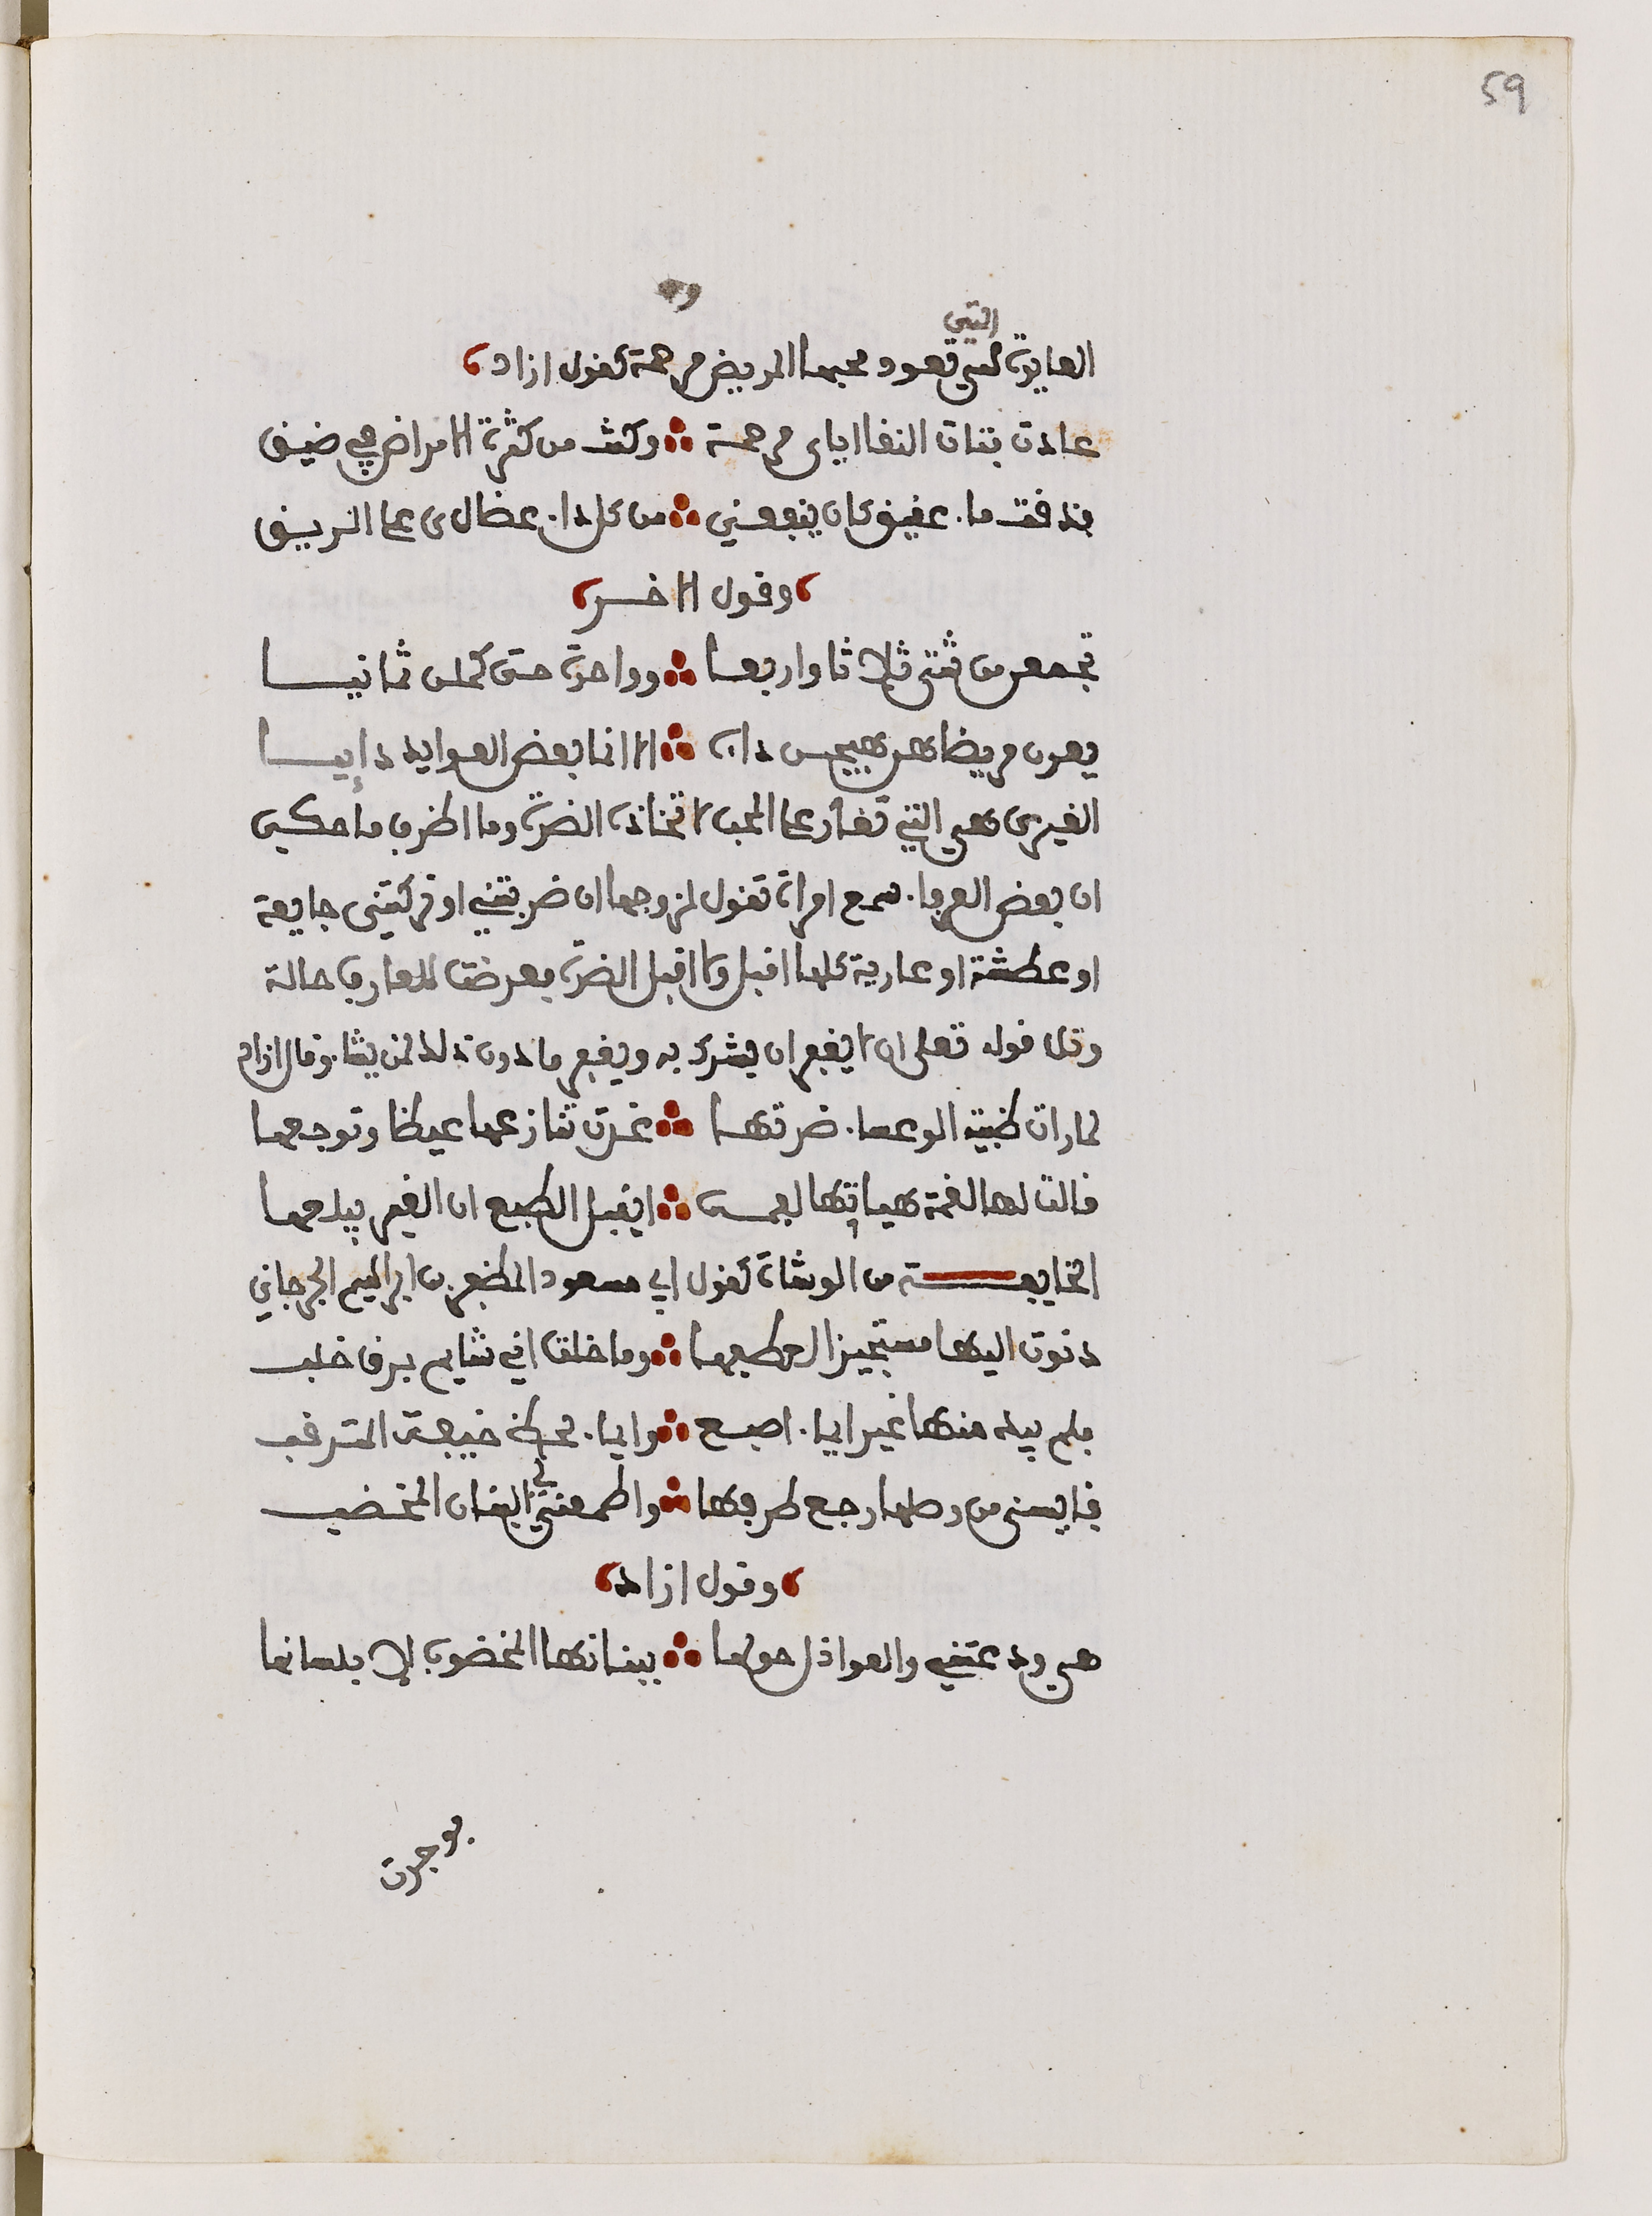 59
التي
العايدة التي تعود محبها المريض مرحمة كقول ازاد
عادت بنات النقا اياى مرحمة ∴ وكنت من كثرة الامراض في ضيق
فذقت ماء عقيق كان ينفعني ∴ من كل داء عضال ى على الريق
وقول الاخر
تجمعن من شتى ثلاثا واربعا ∴ وواحدة حتى كملن ثمانيا
يعدن مريضا هن هيجن داءه ∴ الا انما بعض العوايد دايسا
الغيرى هي التي تغار على المحب لاتخاذه الضرة وما اظرف ما حكي
ان بعض العرفاء سمع امراة تقول لزوجها ان ضربتني او تركتني جايعة
او عطشة او عارية كلها اقبل ولا اقبل الضرة فعرضت للعارف حالة
وتلى قوله تعلى ان الله لا يغفر ان يشرك به ويغفر ما دون ذلك لمن يشاء وقال ازاد
لما رات ظبية الوعساء ضرتها ∴ غدت تنازعها غيظا وتوجعها
قالت لها لغمة هيا تها لعمت ∴ ايقبل الطبع ان الغير يبلعها
الخايفة من الوشاة كقول ابي مسعود المظفر بن ابراهيم الجرجاني
دنوت اليها مستجيزا لعطفها ∴ وما خلت اني شايم برق خلب
فلم يبد منها غير ايماء اصبع ∴ وايماء لحظ خيفة المترقب
فايسني من وصلها رجع طرفها ∴ واطمعني في البنان المخضب
وقول ازاد
هي ودعتني والعواذل حولها ∴ ببنانها المخضوب لا بلسانها
فوجدت